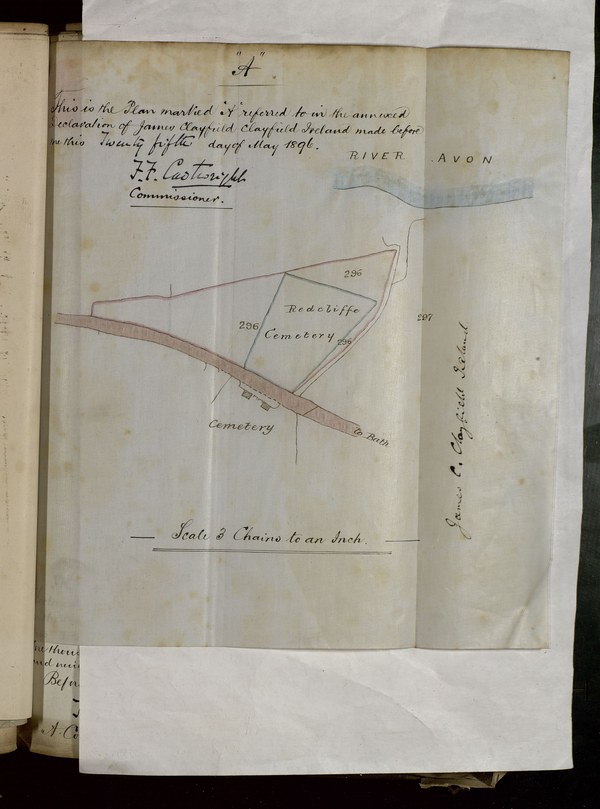 "A"
This is the Plan marked "A" referred to in the annexed
declaration of James Clayfield Clayfield Ireland made before
me this Twenty fifth day of May 1896.
F. F. Cartwright
Commissioner.
RIVER AVON
296
Redcliffe
296
Cemetery
296
297
Cemetery
to Bath
James C. Clayfield Ireland
Scale 3 Chains to an Inch.
Befo